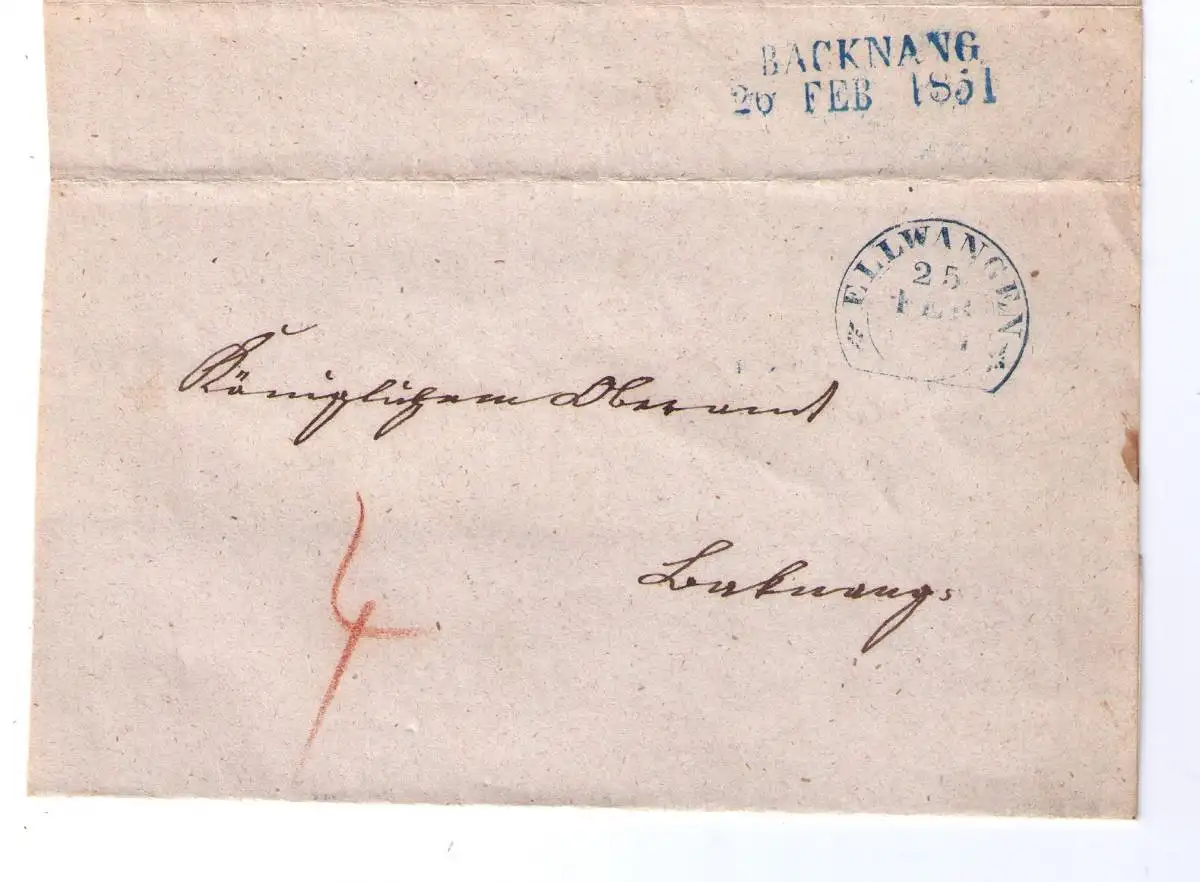 BACKNANG
26 FEB 1851
ELLWANGEN
25
FEB
Königlichem Oberamt
4
Baknang.